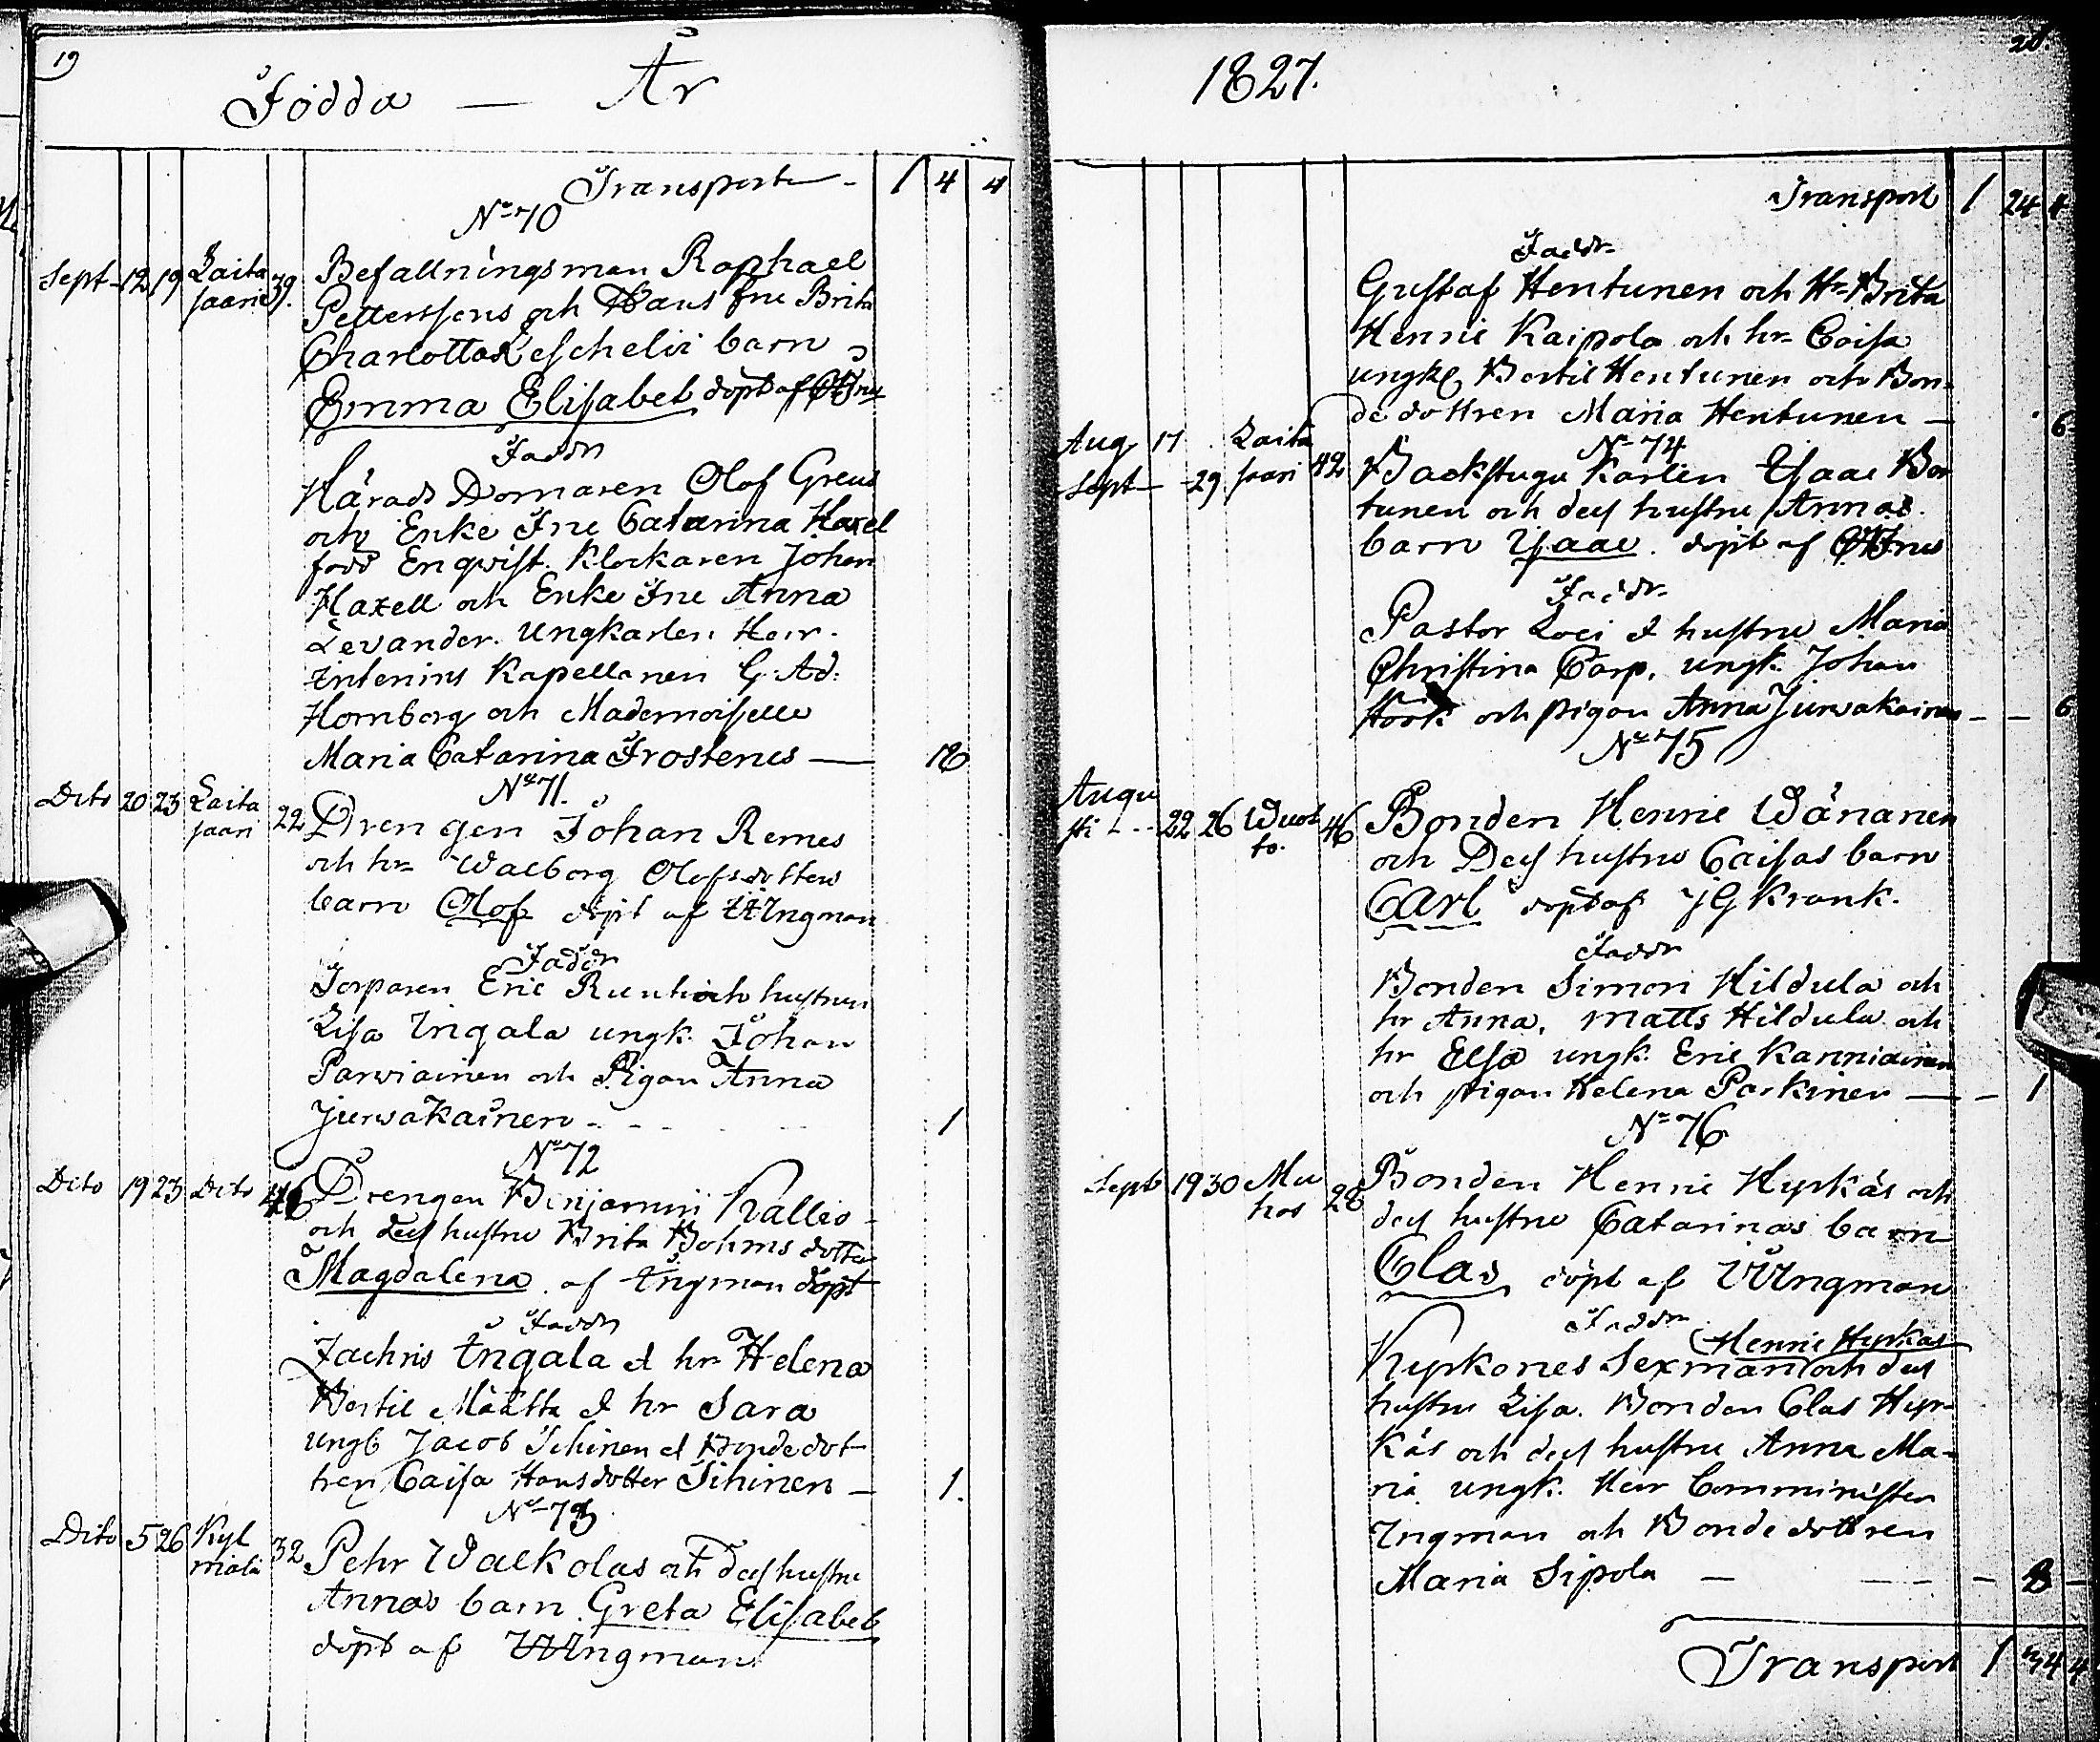 19
Födda — År
Transport - 1 4 4
No 70
Sept 12 19 Laita 39. Befallningsman Raphael
saari Petterssons och Hans Fru Brita
Charlottas barn
Emma Elisabet döpt af
Faddr
Härads Domaren Olof
och Enke Fru Catarina Haxel
född Enqvist. Klockaren Johan
Haxell och Enke Fru Anna
Levander. Ungkarlen Herr
Kapellanen G. Ad:
Hornborg och Mademoiselle
Maria Catarina Frosterus —
No 71.
Dito 20 23 Laita 22 Drengen Johan Remes
saari
och hr Walborg Olofsdotter
barn Olof döpt af Ingman
Faddr
Torparen Eric och hustrun
Lisa Ingala ungk. Johan
Parviainen och Pigan Anna
Jurvakainen - - 1
No 72
Dito 19 23 Dito 46 Drengen Benjamin Kallio
och dess hustru Brita Bohms dotter
Magdalena af Ingman döpt
Faddr
Zachris Ingala et hr Helena
Bertil Määtta et hr Sara
ungk Jacob Tihinen et Bondedot-
tren Caisa Hansdotter Tihinen — 1.
No 73
Dito 5 26 Kyl 32 Pehr Walkolas och dess hustru
mälä
Annas barn Greta Elisabet
döpt af Ingman
1827.
20.
Transport 1 24 4
Faddr
Gustaf Hentunen och Hr Brita
Henric Kaipola och hr Caisa
ungk Bertil Hentunen och Bon-
de dottren Maria Hentunen — 6
No 74
Aug 17 Laita 42 Backstugu Karlen Isaac
Sept - 29 saari
tunen och dess hustru Annas
barn Isaac. döpt af
Faddr
Pastor Loci et hustru Maria
Christina Carp. ungk. Johan
och pigan Anna Jurvakainen — — 6
No 75
Augu
sti - - 22 26 Wuot 46 Bonden Henric Wänänen
to.
och Dess hustru Caisas barn
Carl döpt af J G Krank.
Faddr
Bonden Simon Hildula och
hr Anna, Matts Hildula och
hr Elsa ungk. Eric Karmiainen
och pigan Helena Parkinen — - 1
No 76
Sept 19 30 Mu 28 Bonden Henric Hyrkäs och
hos
dess hustru Catarinas barn
Clas döpt af Ingman
Faddr
Henric Hyrkäs
Kyrkones Sexman och dess
hustru Lisa. Bonden Clas Hyr-
käs och dess hustru Anna Ma-
ria ungk. Herr Comministern
Ingman och Bonde dottren
Maria Sipola — — - -
Transport 1 34 4